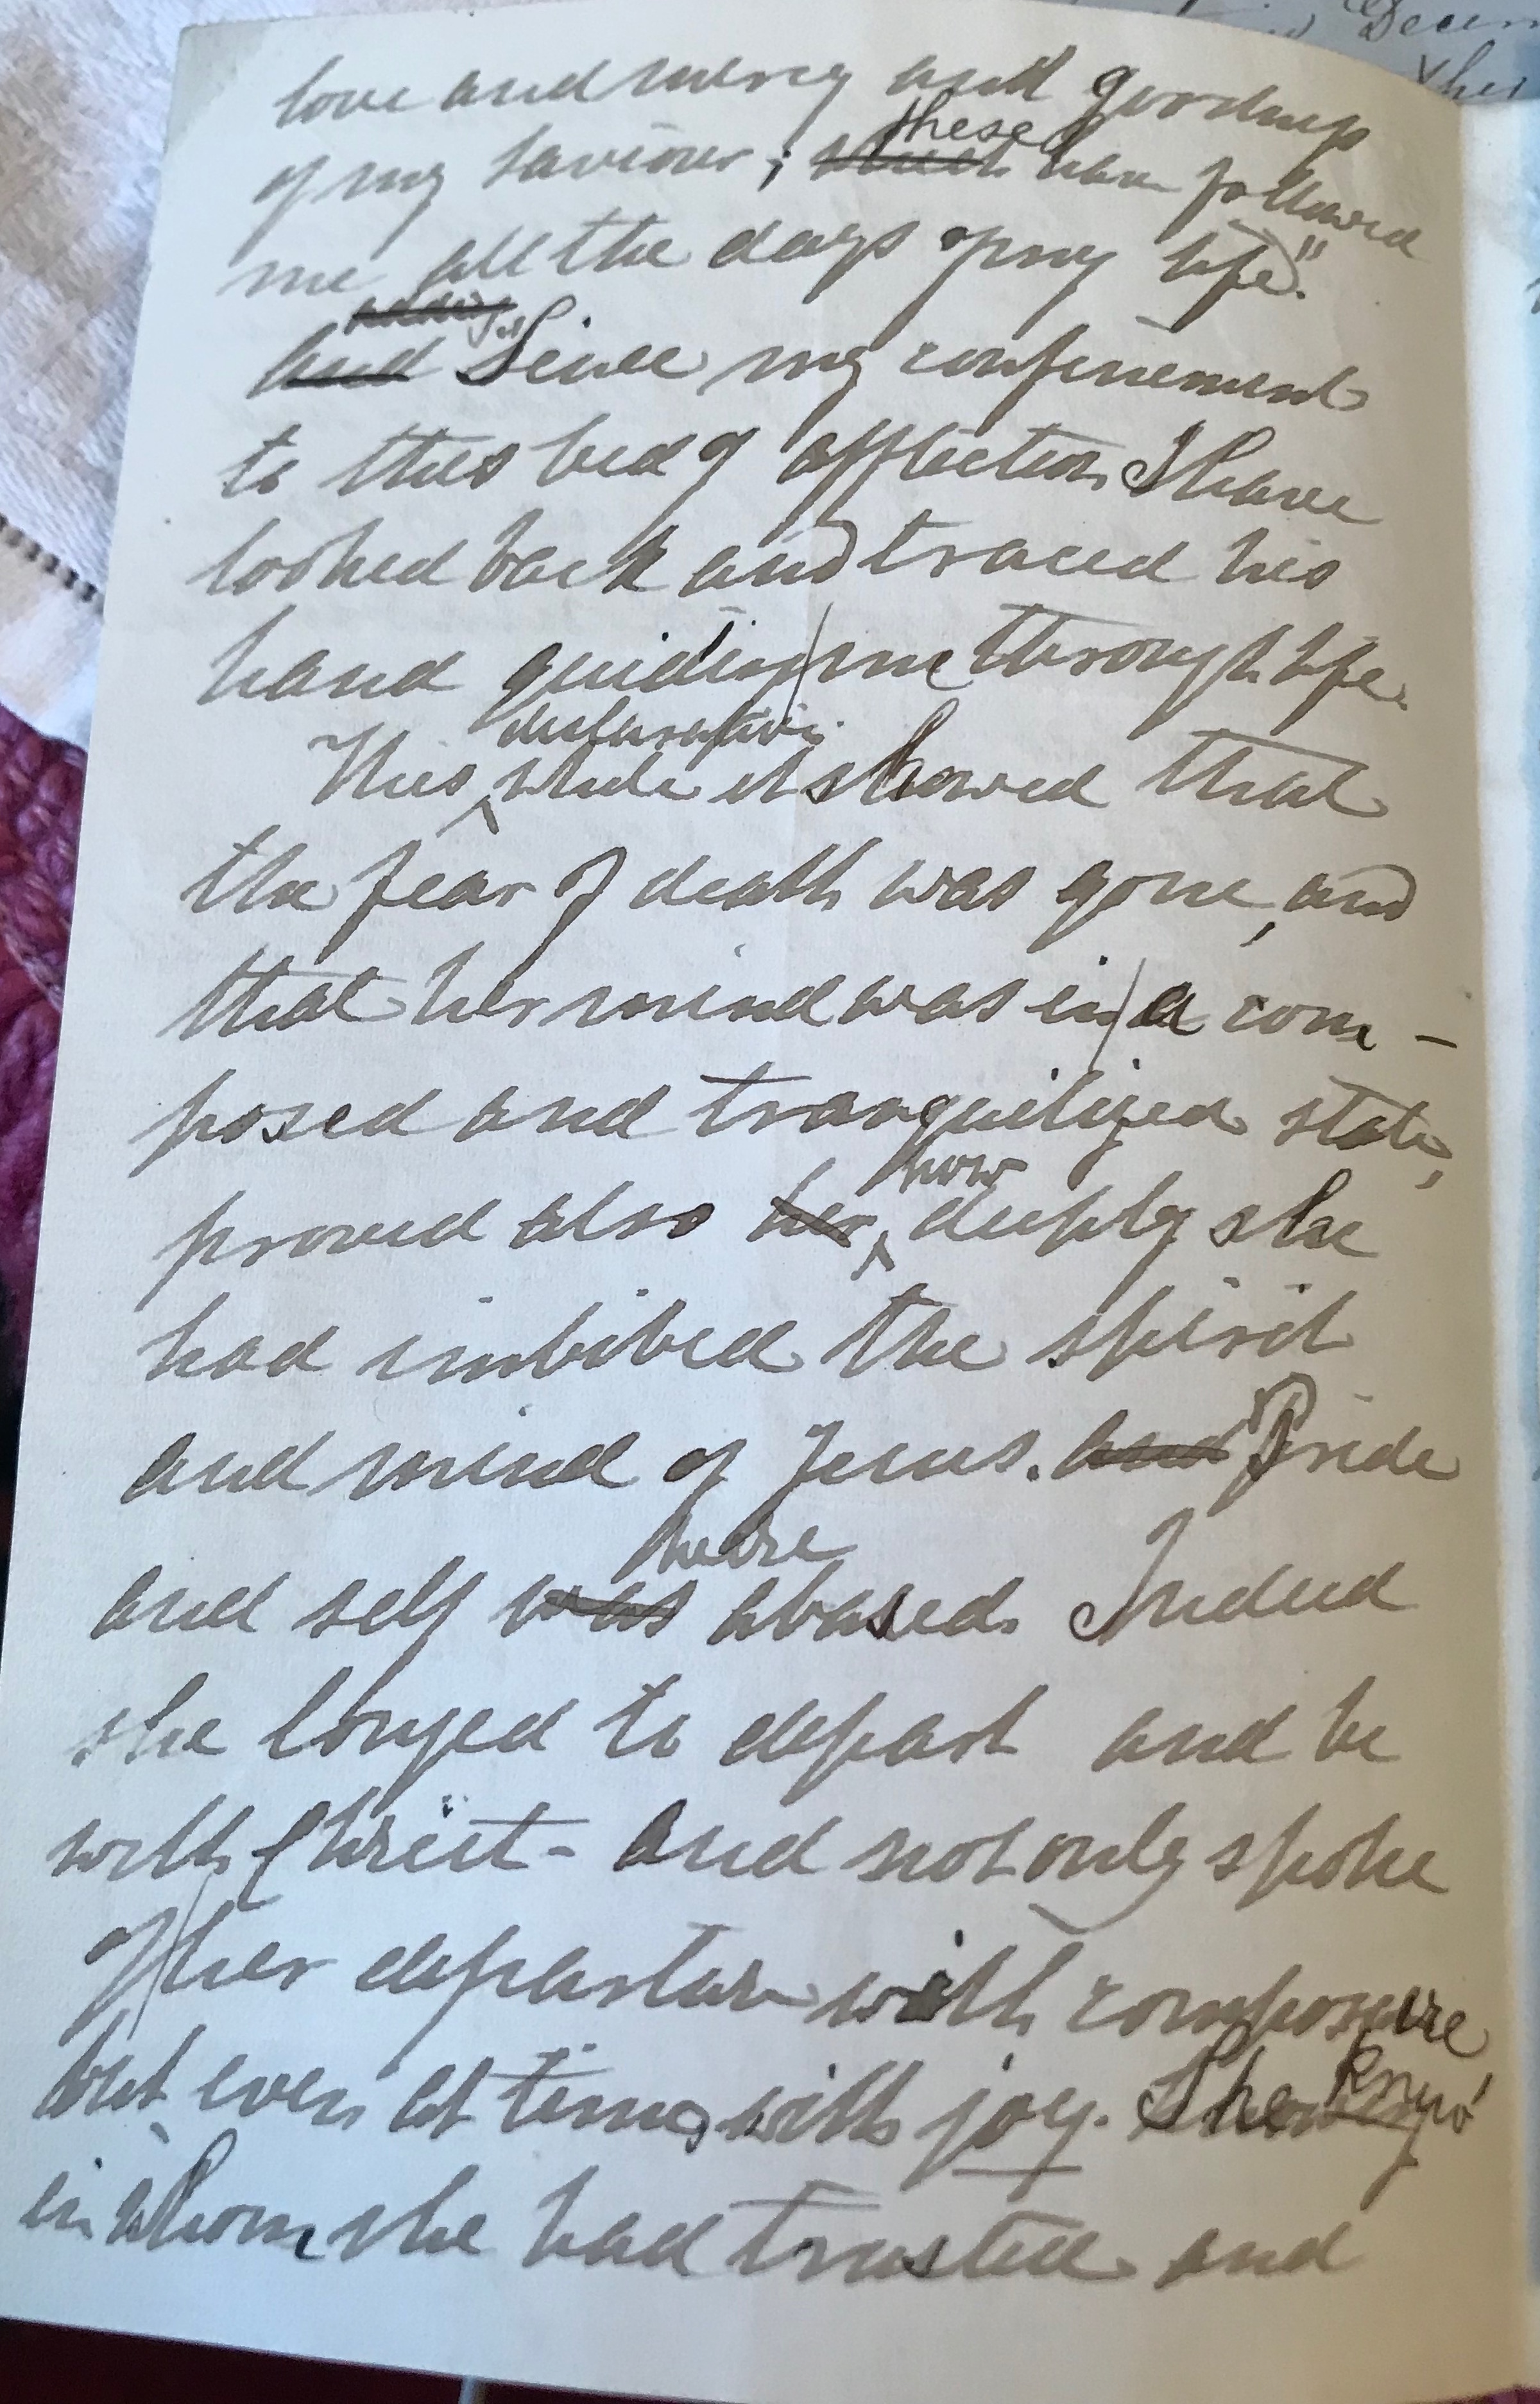 Decem
love and mercy and goodness
of my Saviour; these have followed
me all the days of my life."
adding
and Since my confinement
to this bed of affliction I have
looked back and traced his
hand guiding me through life.
declaration
This while it showed that
the fear of death was gone, and
that her mind was in a com -
posed and tranquilized state,
how
proved also her deeply she
had imbibed the spirit
and mind of Jesus. and Pride
were
and self was abased. Indeed
she longed to depart and be
with Christ - And not only spoke
of her departure with composure
but even at times with joy. She knew
in whom she had trusted and